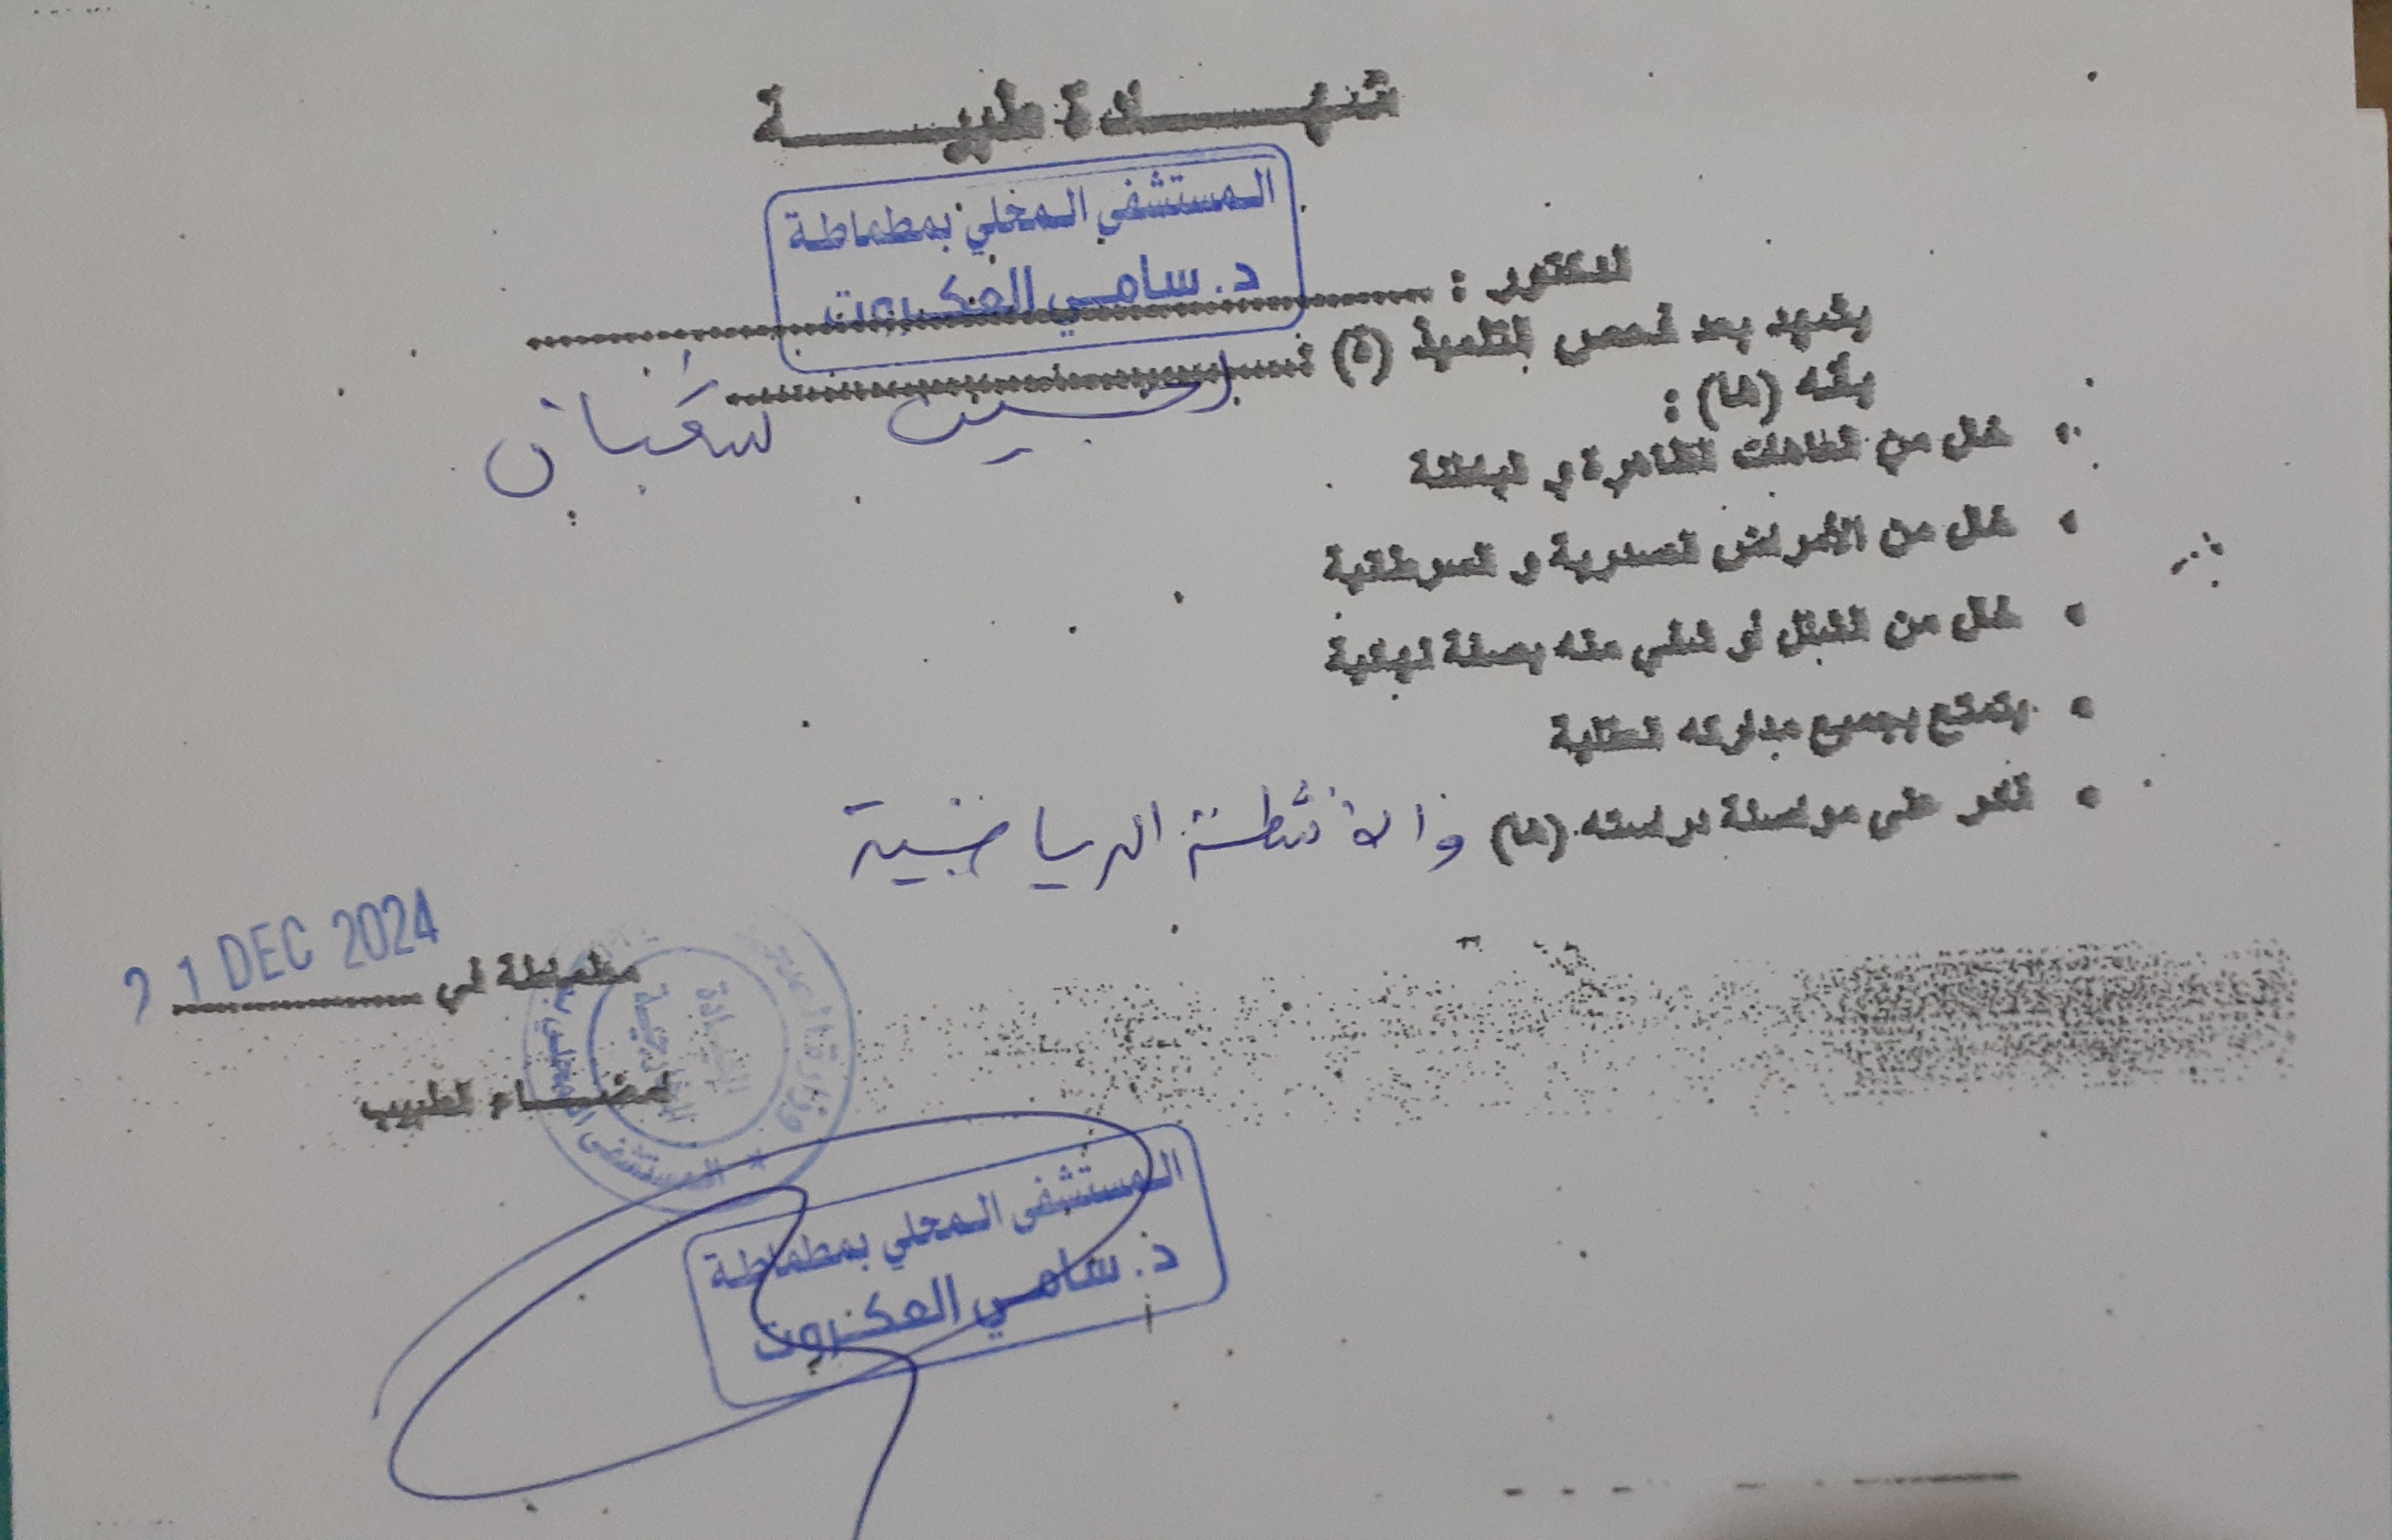 شهـــــادة طبيـــــــة
المستشفى المحلي بمطماطة
د. سامي العكروت
الدكتور :
يشهد بعد فحص التلميذ (ة)
الحسين شعبان
بأنه (ها) :
• خال من العاهات الظاهرة و الباطنة
• خال من الأمراض الصدرية و السرطانية
• خال من السل أو شفي منه بصفة نهائية
• يتمتع بجميع مداركه العقلية
• قادر على مواصلة دراسته (ها) والأنشطة الرياضية
مطماطة في 21 DEC 2024
إمضـــاء الطبيب
وزارة
المستشفى المحلي
المستشفى المحلي بمطماطة
د. سامي العكروت